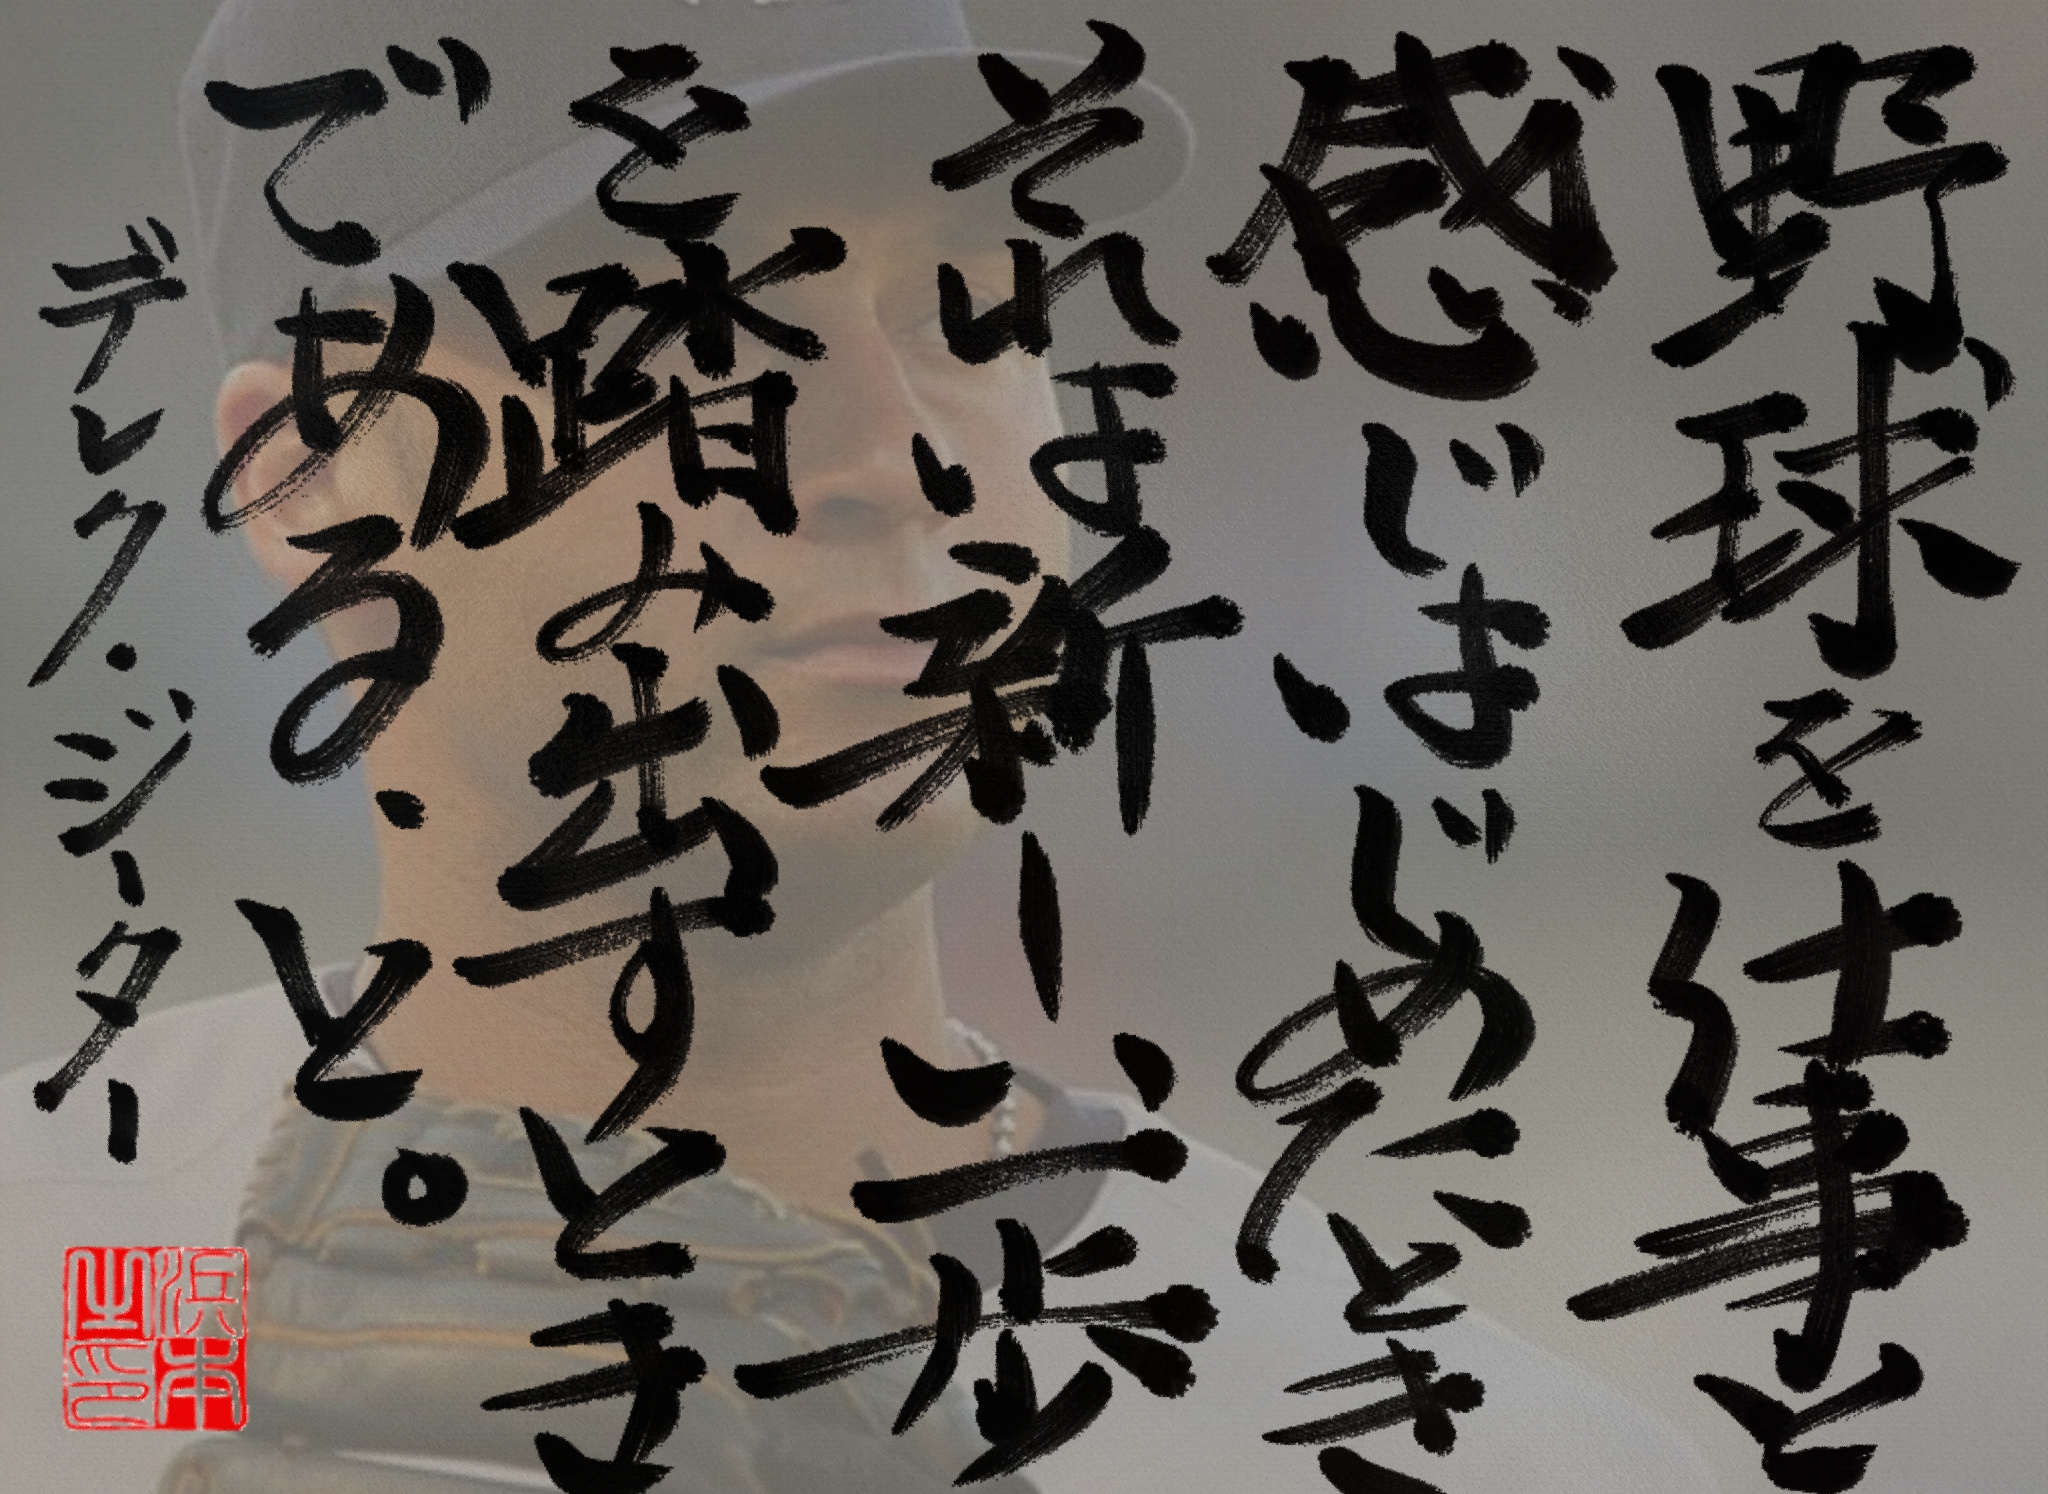 野球を仕事と
感じはじめたとき、
それは新しい一歩
を踏み出すとき
である、と。
デレク・ジーター
浜本之印